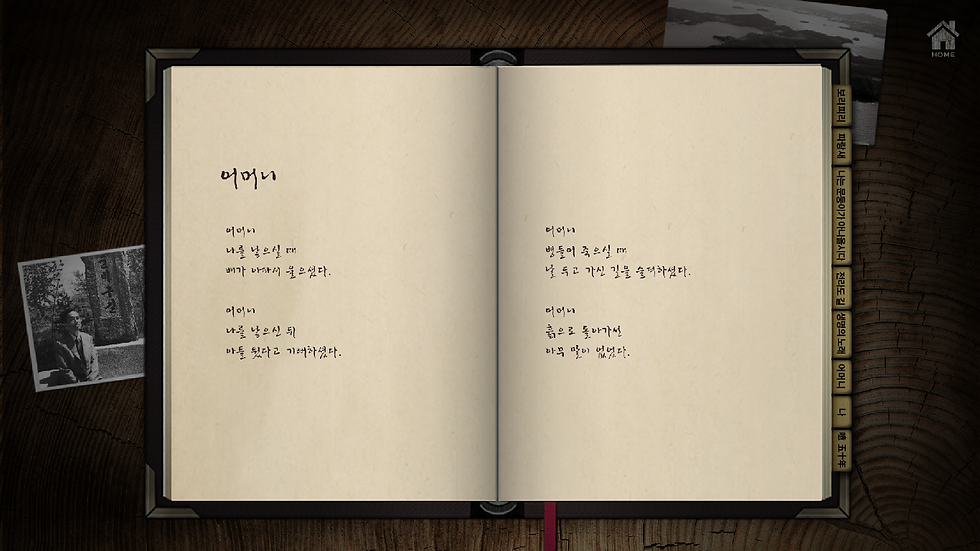 어머니
어머니
나를 낳으실 때
배가 아파서 울으셨다.
어머니
나를 낳으신 뒤
아들 뒀다고 기뻐하셨다.
어머니
병들어 죽으실 때
날 두고 가신 길을 슬퍼하셨다.
어머니
흙으로 돌아가신
아무 말이 없었다.
HOME
보리피리
파랑새
나는 문둥이가 아니올시다
전라도 길
생명의 노래
어머니
나
五十年